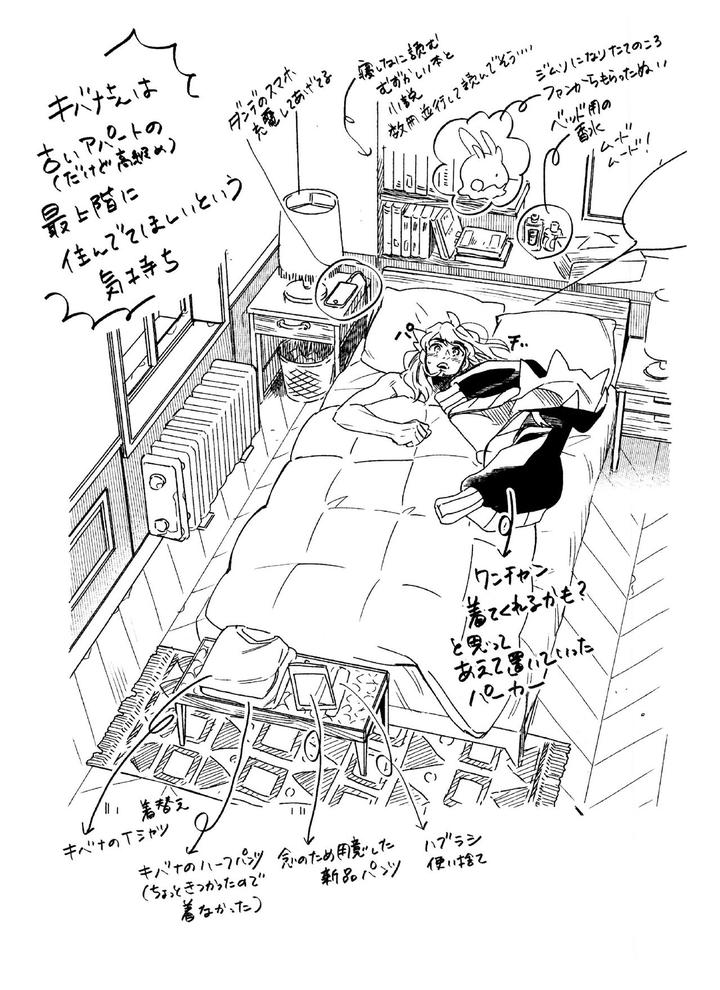 キバナさんは
古いアパートの
(だけど高級め)
最上階に
住んでてほしいという
気持ち
ダンデのスマホ
充電してあげてる
寝しなに読む
むずかしい本と
小説
数冊並行して読んでそう…
ジムリになりたてのころ
ファンからもらったぬい
ベッド用の
香水
ムード
ムード!
パ
チ…
ワンチャン
着てくれるかも?
と思って
あえて置いていった
パーカー
着替え
キバナのTシャツ
キバナのハーフパンツ
(ちょっときつかったので
着なかった)
念のため用意した
新品パンツ
ハブラシ
使い捨て